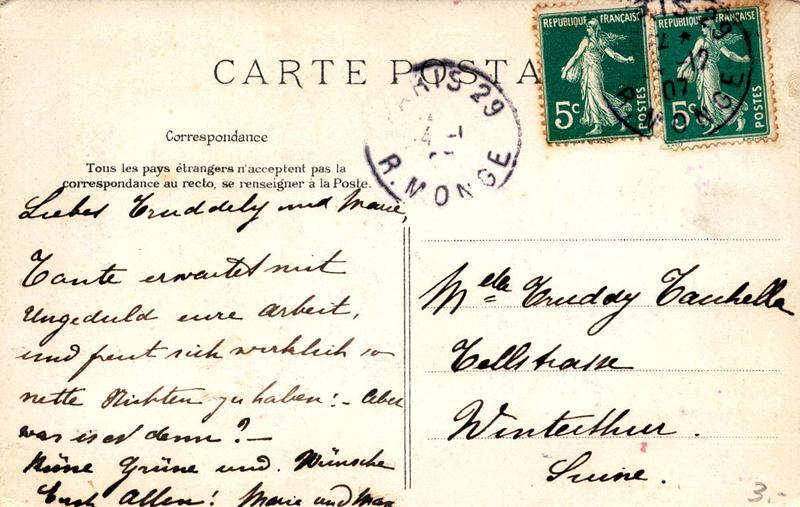 CARTE POSTA
RÉPUBLIQUE FRANÇAISE
5c POSTES
RÉPUBLIQUE FRANÇAISE
5c POSTES
PARIS 29
R. MONGE
PARIS 29
07
R. MONGE
Correspondance
Tous les pays étrangers n'acceptent pas la
correspondance au recto, se renseigner à la Poste.
Liebes Truddely und Marie,
Tante erwartet mit
Ungeduld eure Arbeit,
und freut sich wirklich so
nette Nichten zu haben! - Aber
was ist denn? -
Grüne und Wünsche
Euch Allen! Marie und Max
Melle Truddy
Tellstrasse
Winterthur.
Suisse.
3.-